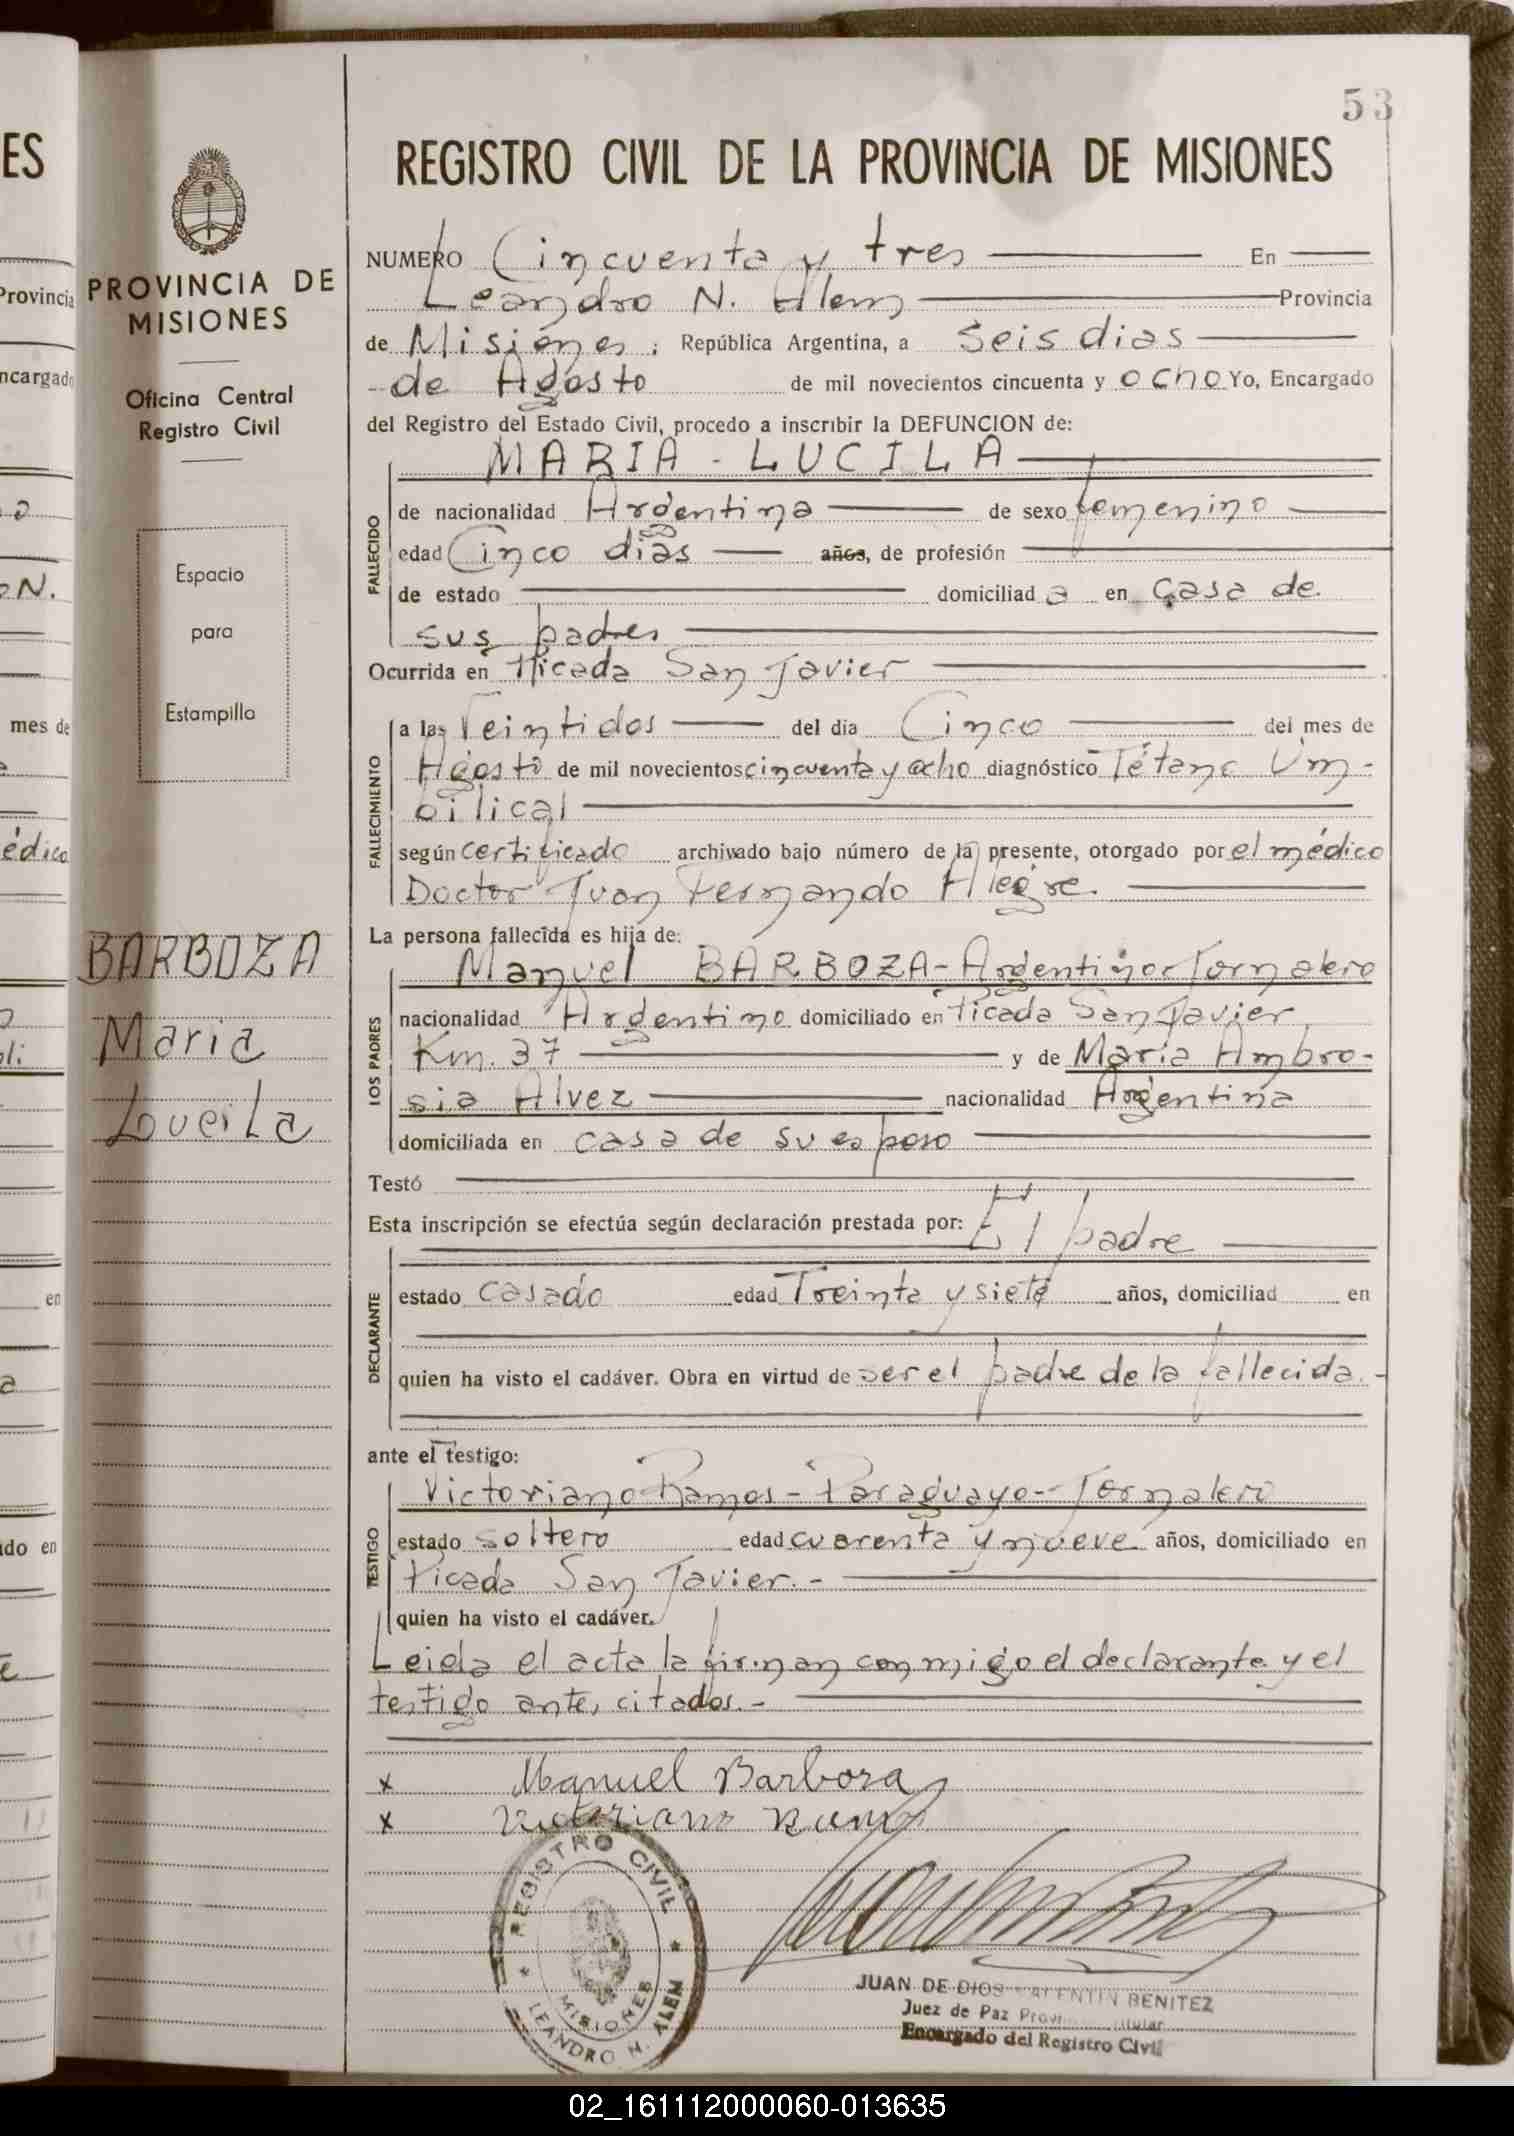 53
ES
REGISTRO CIVIL DE LA PROVINCIA DE MISIONES
PROVINCIA DE
MISIONES
Oficina Central
Registro Civil
Espacio
para
Estampilla
BARBOZA
Maria
Lucila
NUMERO Cincuenta y tres En
Leandro N. Alem Provincia
de Misiones; República Argentina, a seis dias
de Agosto de mil novecientos cincuenta y ocho Yo, Encargado
del Registro del Estado Civil, procedo a inscribir la DEFUNCION de:
MARIA - LUCILA
FALLECIDO
de nacionalidad Argentina de sexo femenino
edad Cinco dias años, de profesión
de estado domiciliad a en Casa de
sus padres
Ocurrida en Picada San Javier
FALLECIMIENTO
a las Veintidos del día Cinco del mes de
Agosto de mil novecientos cincuenta y ocho diagnóstico Tétano Um-
bilical
según certificado archivado bajo número de la presente, otorgado por el médico
Doctor Juan Fernando Alegre.
La persona fallecida es hija de:
LOS PADRES
Manuel BARBOZA - Argentino - Jornalero
nacionalidad Argentino domiciliado en Picada San Javier
Km. 37 y de Maria Ambro-
sia Alvez nacionalidad Argentina
domiciliada en casa de su esposo
Testó
Esta inscripción se efectúa según declaración prestada por: El padre
DECLARANTE
estado casado edad Treinta y siete años, domiciliad en
quien ha visto el cadáver. Obra en virtud de ser el padre de la fallecida.-
ante el testigo:
TESTIGO
Victoriano Ramos - Paraguayo - Jornalero
estado soltero edad cuarenta y nueve años, domiciliado en
Picada San Javier.-
quien ha visto el cadáver.
Leida el acta la firman conmigo el declarante y el
testigo antes citados.-
x Manuel Barboza
x Victoriano Ramos
REGISTRO CIVIL
MISIONES
LEANDRO N. ALEM
JUAN DE DIOS VALENTIN BENITEZ
Juez de Paz Titular
Encargado del Registro Civil
Provincia
ncargado
mes de
édico
en
do en
02_161112000060-013635